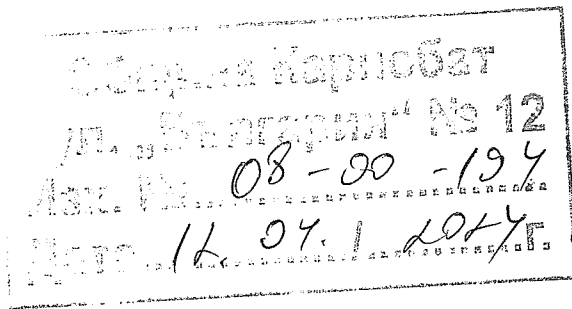 Община Карнобат
ул. „България“ № 12
Изх. № 08-00-194
Дата 12.04. 2024 г.